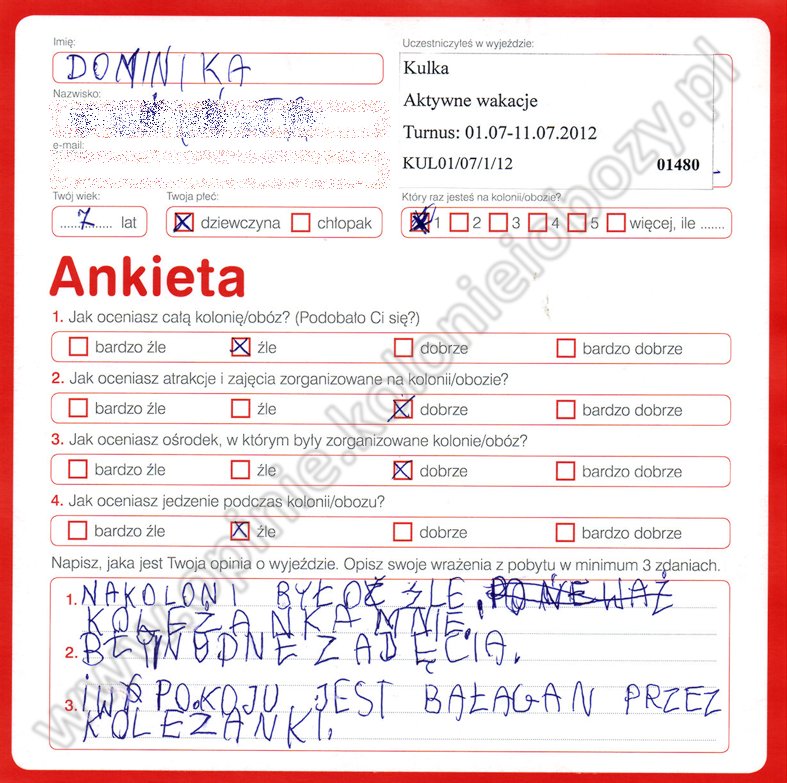 Imię:
Uczestniczyłeś w wyjeździe:
DOMINIKA
Kulka
Nazwisko:
Aktywne wakacje
Turnus: 01.07-11.07.2012
e-mail:
KUL01/07/1/12 01480
Twój wiek: Twoja płeć: Który raz jesteś na kolonii/obozie?
7 lat dziewczyna chłopak 1 2 3 4 5 więcej, ile .......
Ankieta
1. Jak oceniasz całą kolonię/obóz? (Podobało Ci się?)
bardzo źle źle dobrze bardzo dobrze
2. Jak oceniasz atrakcje i zajęcia zorganizowane na kolonii/obozie?
bardzo źle źle dobrze bardzo dobrze
3. Jak oceniasz ośrodek, w którym były zorganizowane kolonie/obóz?
bardzo źle źle dobrze bardzo dobrze
4. Jak oceniasz jedzenie podczas kolonii/obozu?
bardzo źle źle dobrze bardzo dobrze
Napisz, jaka jest Twoja opinia o wyjeździe. Opisz swoje wrażenia z pobytu w minimum 3 zdaniach.
1. NAKOLONI ŹLE PONIEWAŻ
KOLEŻANKA MNIE
2. NUDNE ZADĘCIA.
3. POKOJU JEST BAŁAGAN PRZEZ
KOLEŻANKI.
www.opinie.kolonieiobozy.pl